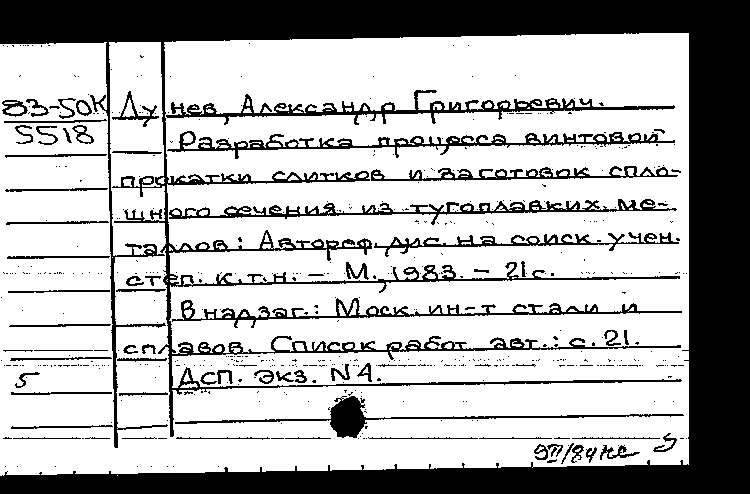 83-50К Лунев, Александр Григорьевич.
5518 Разработка процесса винтовой
прокатки слитков и заготовок спло-
шного сечения из тугоплавких ме-
таллов: Автореф. дис. на соиск. учен.
степ. к.т.н. – М., 1983. – 21с.
В надзаг.: Моск. ин-т стали и
сплавов. Список работ авт.: с. 21.
5 Дсп. Экз. N4.